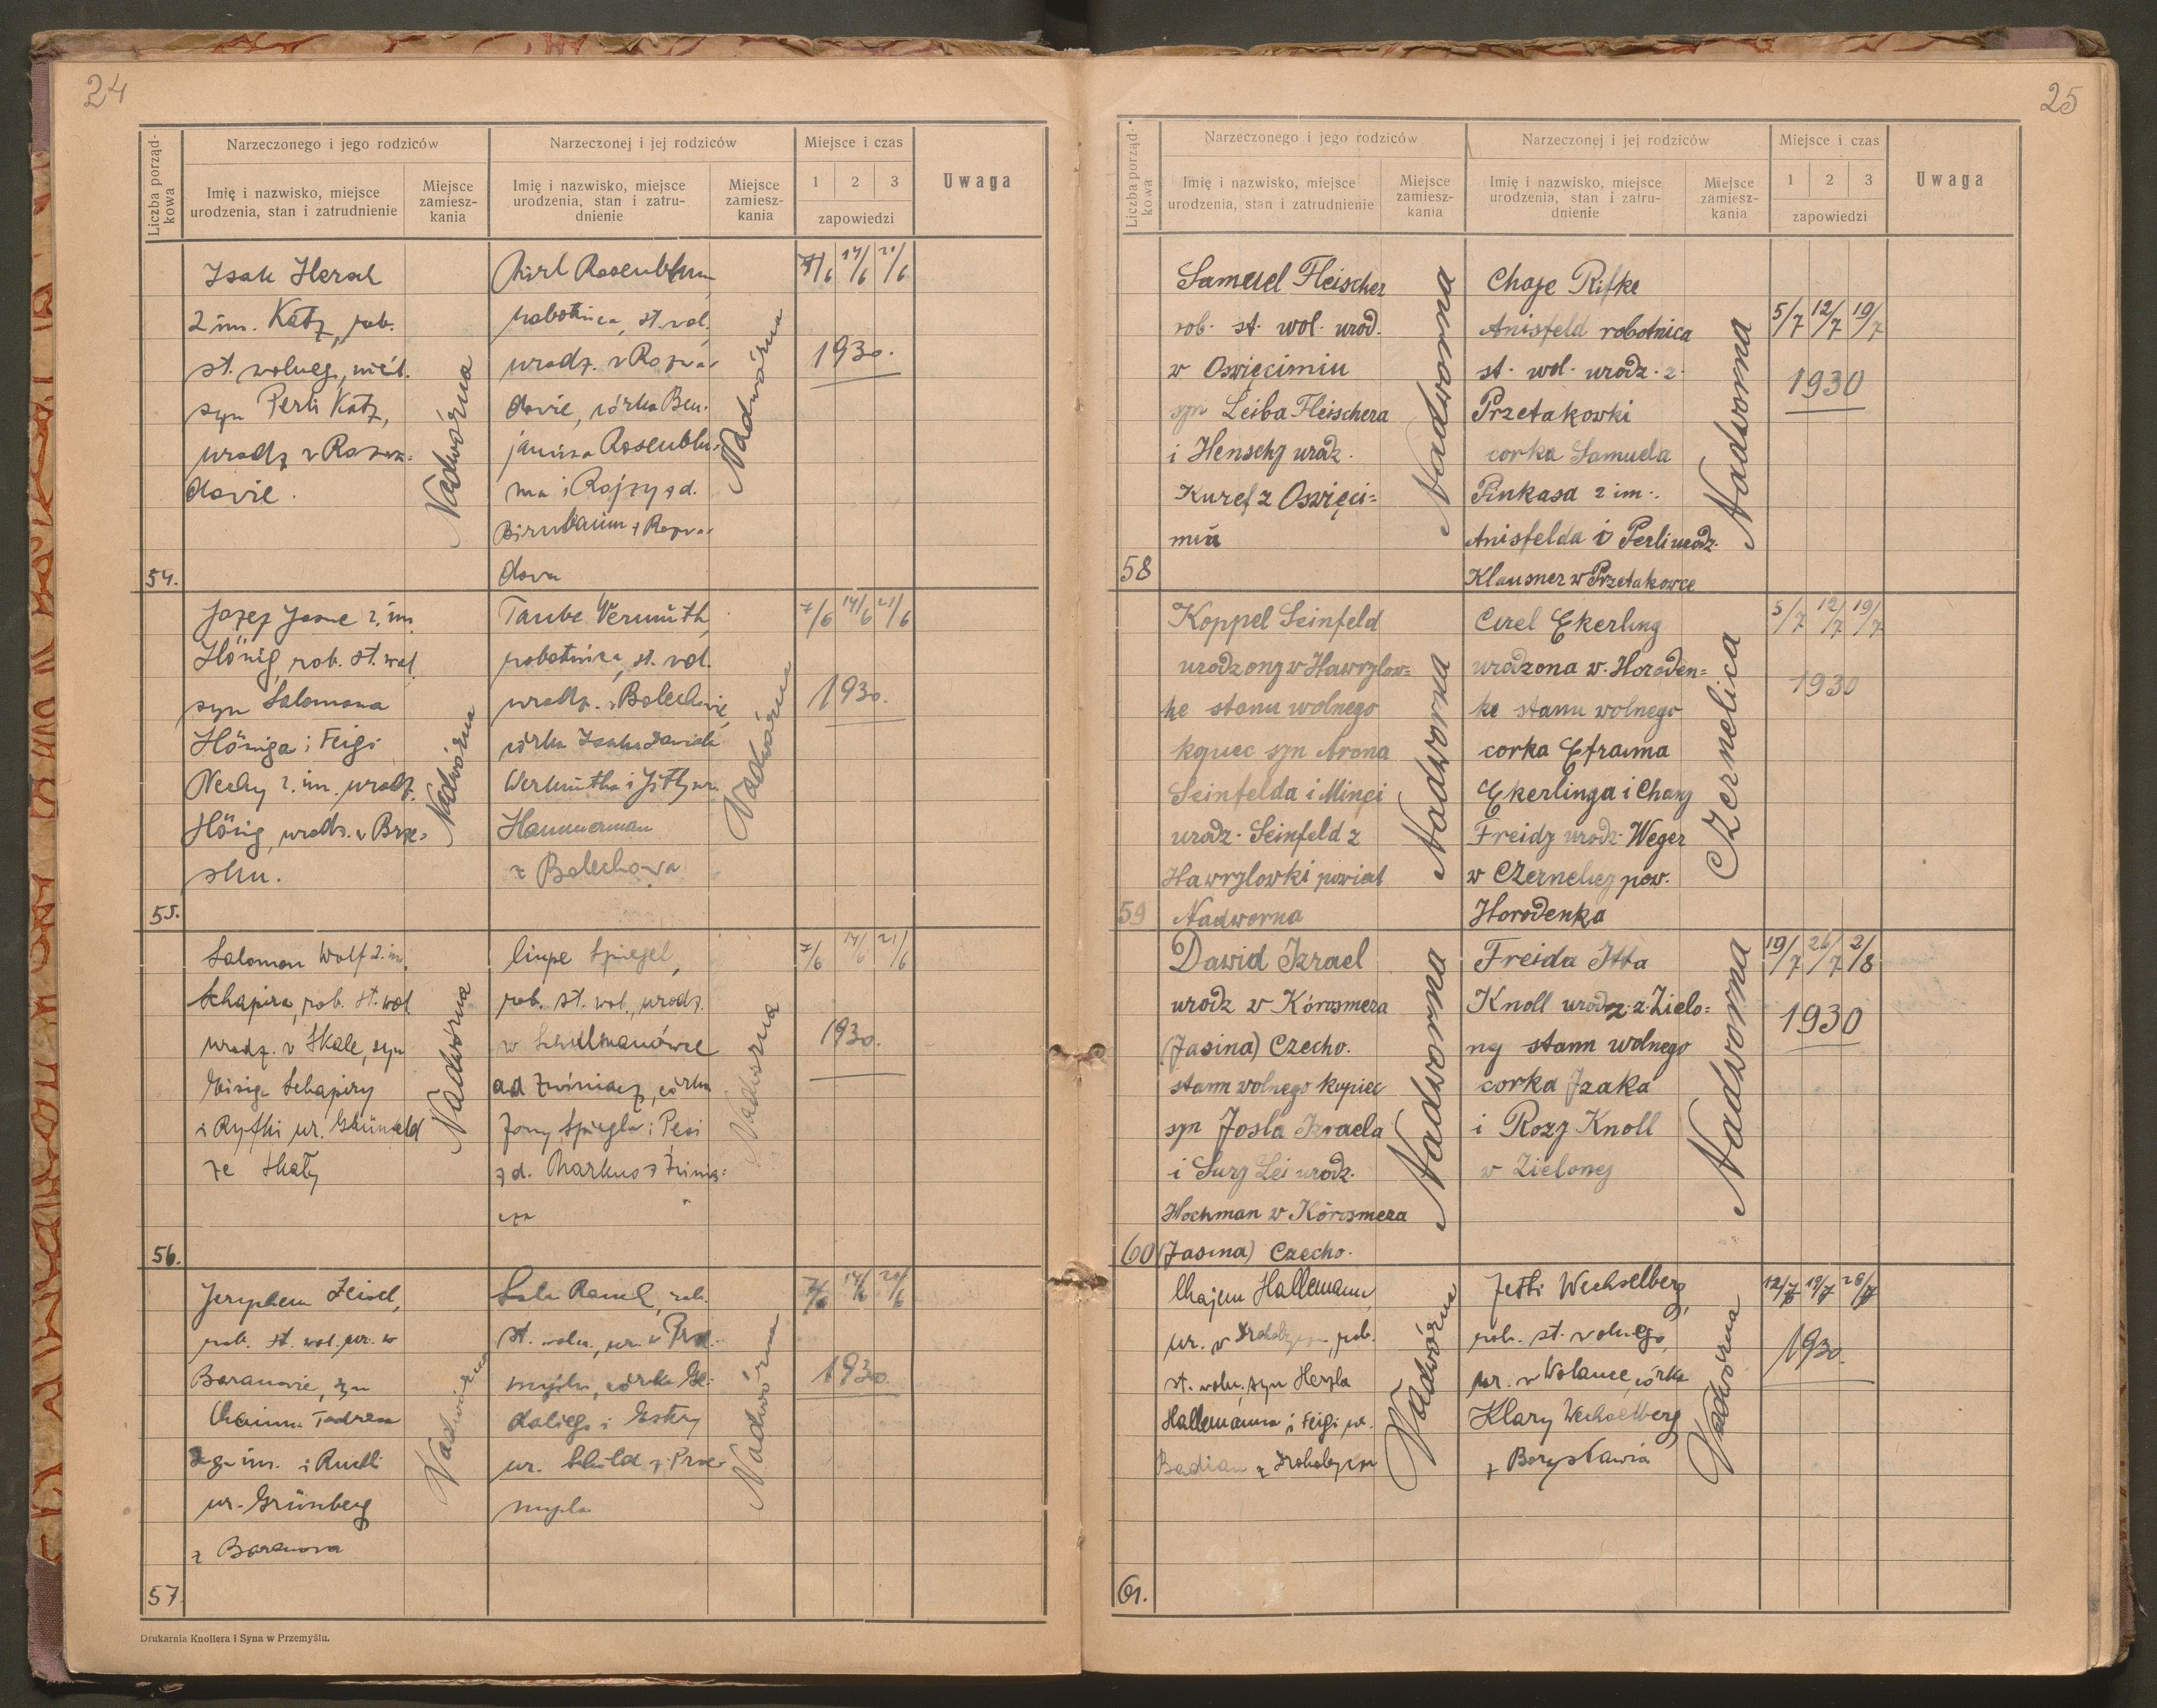 24
Liczba porządkowa
Narzeczonego i jego rodziców
Narzeczonej i jej rodziców
Miejsce i czas
Uwaga
Imię i nazwisko, miejsce
urodzenia, stan i zatrudnienie
Miejsce
zamiesz-
kania
Imię i nazwisko, miejsce
urodzenia, stan i zatru-
dnienie
Miejsce
zamiesz-
kania
1 2 3
zapowiedzi
54.
Isak Hersch
2 im. Katz, rob.
st. wolnego, nieśl.
syn Perli Katz,
urodz w Rozwa-
dowie.
Nadwórna
Rosenblum
robotnica, st. wol.
urodz. w Rozwa-
dowie, córka Ben-
jamina Rosenblu-
ma i Rojzy z d.
Birnbaum z Rozwa-
dowa
Nadwórna
7/6 14/6 21/6
1930.
55.
Józef Josne 2. im.
Hönig, rob. st. wol.
syn Salomona
Höniga i Feigi
Nechy 2. im. urodz.
Hönig, urodz. w Brze-
sku.
Nadwórna
Taube Vermuth,
robotnica, st. wol.
urodz. w Bolechowie,
córka Isaka Dawida
Wermutha i Jitty ur.
Hammerman
z Bolechowa
Nadwórna
7/6 14/6 21/6
1930.
56.
Salomon Wolf 2. im.
Schapira, rob. st. wol
urodz. w Skale, syn
Eisiga Schapiry
i Ryfki ur. Grünwald
ze Skały
Nadwórna
Spiegel,
rob. st. wol., urodz.
w Schulmanówce
ad córka
Jony Spiegla i Pesi
z d. Markus z
Nadwórna
7/6 14/6 21/6
1930.
57.
Zeisel,
rob. st. wol. ur. w
Baranowie, syn
Chaima
2go im. i Ruchli
ur. Grünberg
z Baranowa
Nadwórna
Sala rob.
st. woln., ur. w Prze-
myślu, córka Ge-
daliego i Estery
ur. Schild z Prze-
myśla
Nadwórna
7/6 14/6 21/6
1930.
Drukarnia Knollera i Syna w Przemyślu.
25
Liczba porządkowa
Narzeczonego i jego rodziców
Narzeczonej i jej rodziców
Miejsce i czas
Uwaga
Imię i nazwisko, miejsce
urodzenia, stan i zatrudnienie
Miejsce
zamiesz-
kania
Imię i nazwisko, miejsce
urodzenia, stan i zatru-
dnienie
Miejsce
zamiesz-
kania
1 2 3
zapowiedzi
58
Samuel Fleischer
rob. st. wol. urod.
w Oswięcimiu
syn Leiba Fleischera
i Henschy urodz.
Kuref z Oswięci=
miu
Nadworna
Chaje Rifke
Anisfeld robotnica
st. wol. urodz. z.
Przetakowki
corka Samuela
Pinkasa 2 im.
Anisfelda i Perli urodz.
Klausner w Przetakowce
Nadworna
5/7 12/7 19/7
1930
59
Koppel Seinfeld
urodzony w Hawrylow=
ke stanu wolnego
kupiec syn Arona
Seinfelda i Minci
urodz. Seinfeld z
Hawrylowki powiat
Nadworna
Nadworna
Cirel Ekerling
urodzona w. Horoden=
ke stanu wolnego
corka Efraima
Ekerlinga i Chany
Freidy urodz. Weger
w Czernelicy pow.
Horodenka
Czernelica
5/7 12/7 19/7
1930
60
Dawid Izrael
urodz w Körosmeza
(Jasina) Czecho.
stanu wolnego kupiec
syn Josla Izraela
i Sury Lei urodz.
Hochman w Körosmeza
(Jasina) Czecho.
Nadworna
Freida Itta
Knoll urodz. z. Zielo=
ny stanu wolnego
corka Izaka
i Rozy Knoll
w Zieloney
Nadworna
19/7 26/7 2/8
1930
61.
Chajem Hallemann,
ur. w Drohobyczu, rob.
st. woln. syn Herzla
Hallemanna i Feigi ur.
Badian z Drohobycza
Nadwórna
Jetti Wechselberg,
rob. st. wolnego,
ur. w Wolance, córka
Klary Wechselberg
z Borysławia
Nadwórna
12/7 19/7 26/7
1930.